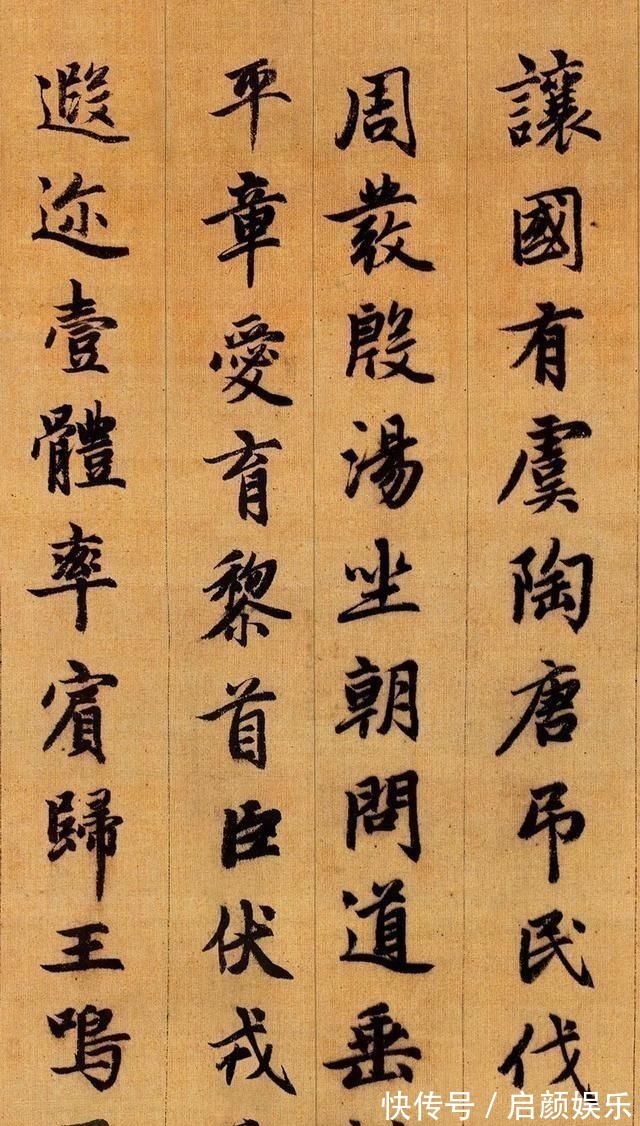 讓國有虞陶唐吊民伐
周發殷湯坐朝問道垂
平章愛育黎首臣伏戎
遐迩壹體率賓歸王鳴
快传号/启颜娱乐